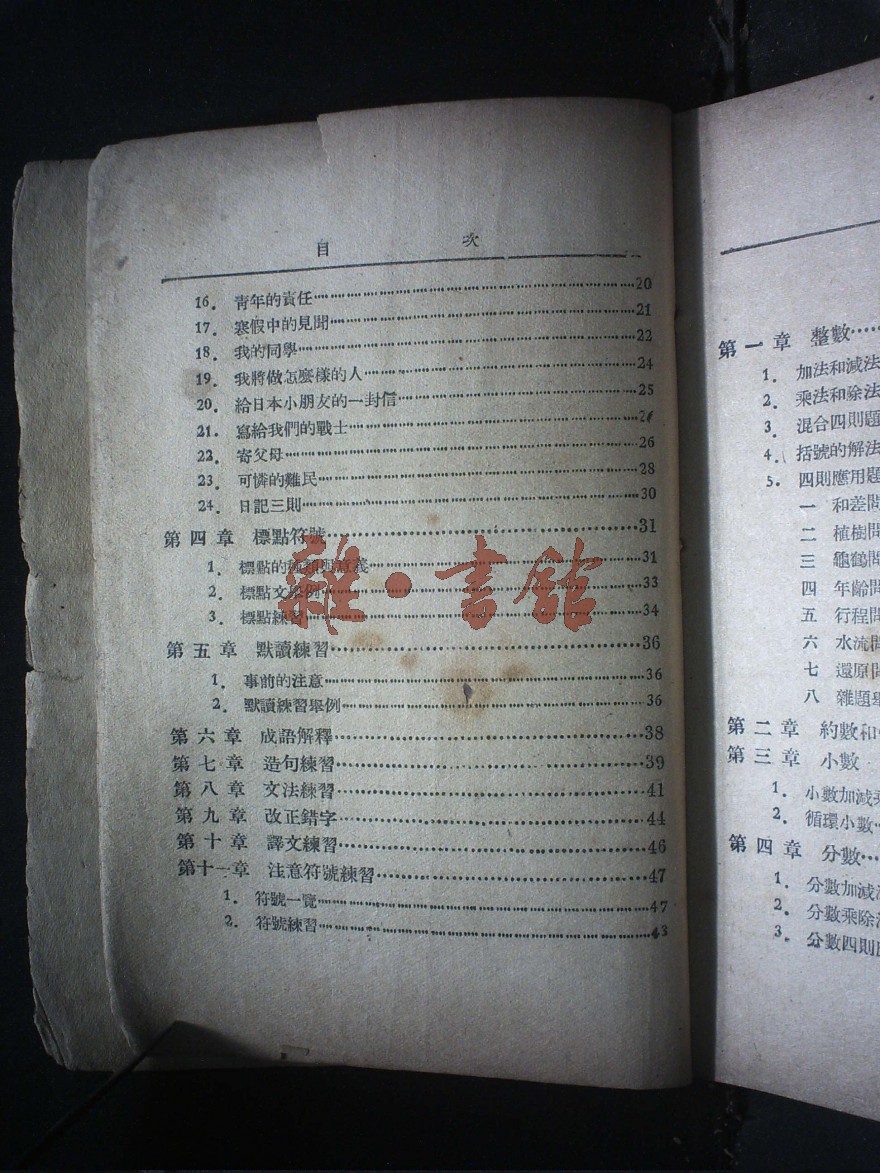 目 次
16. 青年的責任 20
17. 寒假中的見聞 21
18. 我的同學 22
19. 我將做怎麼樣的人 24
20. 給日本小朋友的一封信 25
21. 寫給我們的戰士
22. 寄父母 26
23. 可憐的難民 28
24. 日記三則 30
第四章 標點符號 31
1. 標點的種類與意義 31
2. 標點文舉例 33
3. 標點練習 34
第五章 默讀練習 36
1. 事前的注意 36
2. 默讀練習舉例 36
第六章 成語解釋 38
第七章 造句練習 39
第八章 文法練習 41
第九章 改正錯字 44
第十章 譯文練習 46
第十一章 注意符號練習 47
1. 符號一覽 47
2. 符號練習 43
雜·書館
第一章 整數
1. 加法和減法
2. 乘法和除法
3. 混合四則題
4. 括號的解法
5. 四則應用題
一 和差問
二 植樹問
三 龜鶴問
四 年齡問
五 行程問
六 水流問
七 還原問
八 雜題舉
第二章 約數和
第三章 小數
1. 小數加減乘
2. 循環小數
第四章 分數
1. 分數加減
2. 分數乘除
3. 分數四則